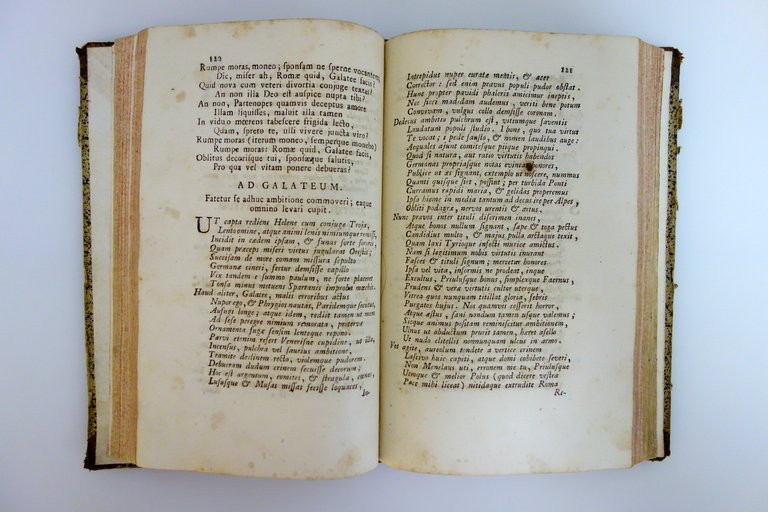 122
Rumpe moras, moneo; sponsam ne sperne vocantem,
Dic, miser ah, Romæ quid, Galatee facis?
Quid nova cum veteri divortia conjuge tentas?
An non illa Deo est auspice nupta tibi?
An non, Partenopes quamvis deceptus amore
Illam liquisses, maluit illa tamen
In viduo merens tabescere frigida lecto,
Quam, spreto te, ulli vivere juncta viro?
Rumpe moras (iterum moneo, semperque monebo)
Rumpe moras: Romæ quid, Galatee, facis,
Oblitos decorisque tui, sponsæque salutis,
Pro qua vel vitam ponere debueras?
AD GALATEUM.
Fatetur se adhuc ambitione commoveri; eaque
omnino levari cupit.
UT capta rediens Helene cum conjuge Troja,
Lentomine, atque animi lenis nimiumque remissi,
Incidit in eædem ipsam, & funus forte sororis,
Quam præceps miseri virtus jugularat Orestis;
Succisam de more comam missura sepulto
Germanæ cineri, fertur demsisse capillo
Vix tandem e summo paulum, ne forte placeret
Tonsa minus metuens Spartanis improba mœchis.
Haud aliter, Galatee, malis erroribus actus
Nuper ego, & Phrygios nautas, Paridemque secutus,
Aufugi longe; atque idem, rediit tamen ut mens
Ad sese peregre nimium remorata, proterva
Ornamenta fugæ sensim lenteque repono.
Parvo etenim refert Venerisne cupidine, ut illa,
Incensus, pulchra vel saucius ambitione,
Tramite declinem recto, violemque pudorem.
Deburam dudum crinem secuisse decorum;
Hoc est argentum, comites, & stragula, cœnas,
Lususque & Musas missas fecisse loquaces;
121
Intrepidus nuper curatæ mentis, & acer
Corrector: sed enim pravus populi pudor obstat.
Hunc propter placidi phaleris amicimur ineptis,
Nec sicci madidam audemus, veriti bene potum
Convivam, vulgus collo demsisse coronam.
Dedecus ambitio pulcrum est, vitiumque faventis
Laudatum populi studio. I bone, quo tua virtus
Te vocat; i pede fausto, & nomen laudibus auge:
Aequales ajunt comitesque ptique propinqui.
Quod si natura, aut ratio virtutis habendos
Germanas propriasque notas honores,
Publice ut æs signant, extemplo ut noscere, nummus
Quanti quisque siet, possint; per turbida Ponti
Curramus rapidi maria, & gelidas properemus
Ipsa hieme in media tantum ad decus ire per Alpes,
Obliti podagræ, nervos urentis & artus.
Nunc pravos inter tituli discrimen inanes,
Atque bonos nullum signant, sæpe & toga pectus
Candidius multo, & majus pulla arctaque texit,
Quam laxi Tyrioque infecti murice amictus.
Nam si legitimum nobis virtutis inurant
Fasces & tituli signum; mercetur honores
Ipsa vel vita, informis ne prodeat, inque
Excultus, Priulusque bonus, simplexque Faernus,
Prudens & veræ virtutis cultor uterque,
Vitrea quos nunquam titillat gloria, febris
Purgatos hujus. Nea quamvis cesserit horror,
Atque æstus, sani nondum tamen usque valentus;
Sicque animus positam reminiscitur ambitionem,
Uinus ut obductum prurit tamen, hæret asello
Ut nudo clitellis nonnunquam ulcus in armo.
Vos agite, aureolum tondete a vertice crinem
Lascivo huic capiti, atque domi cohibete severi,
Non Menelaus uti, erronem me tu, Priulusque
Uinque & melior Polus (quod dicere vestra
Pace mihi liceat) nitidaque extrudite Roma
Re-